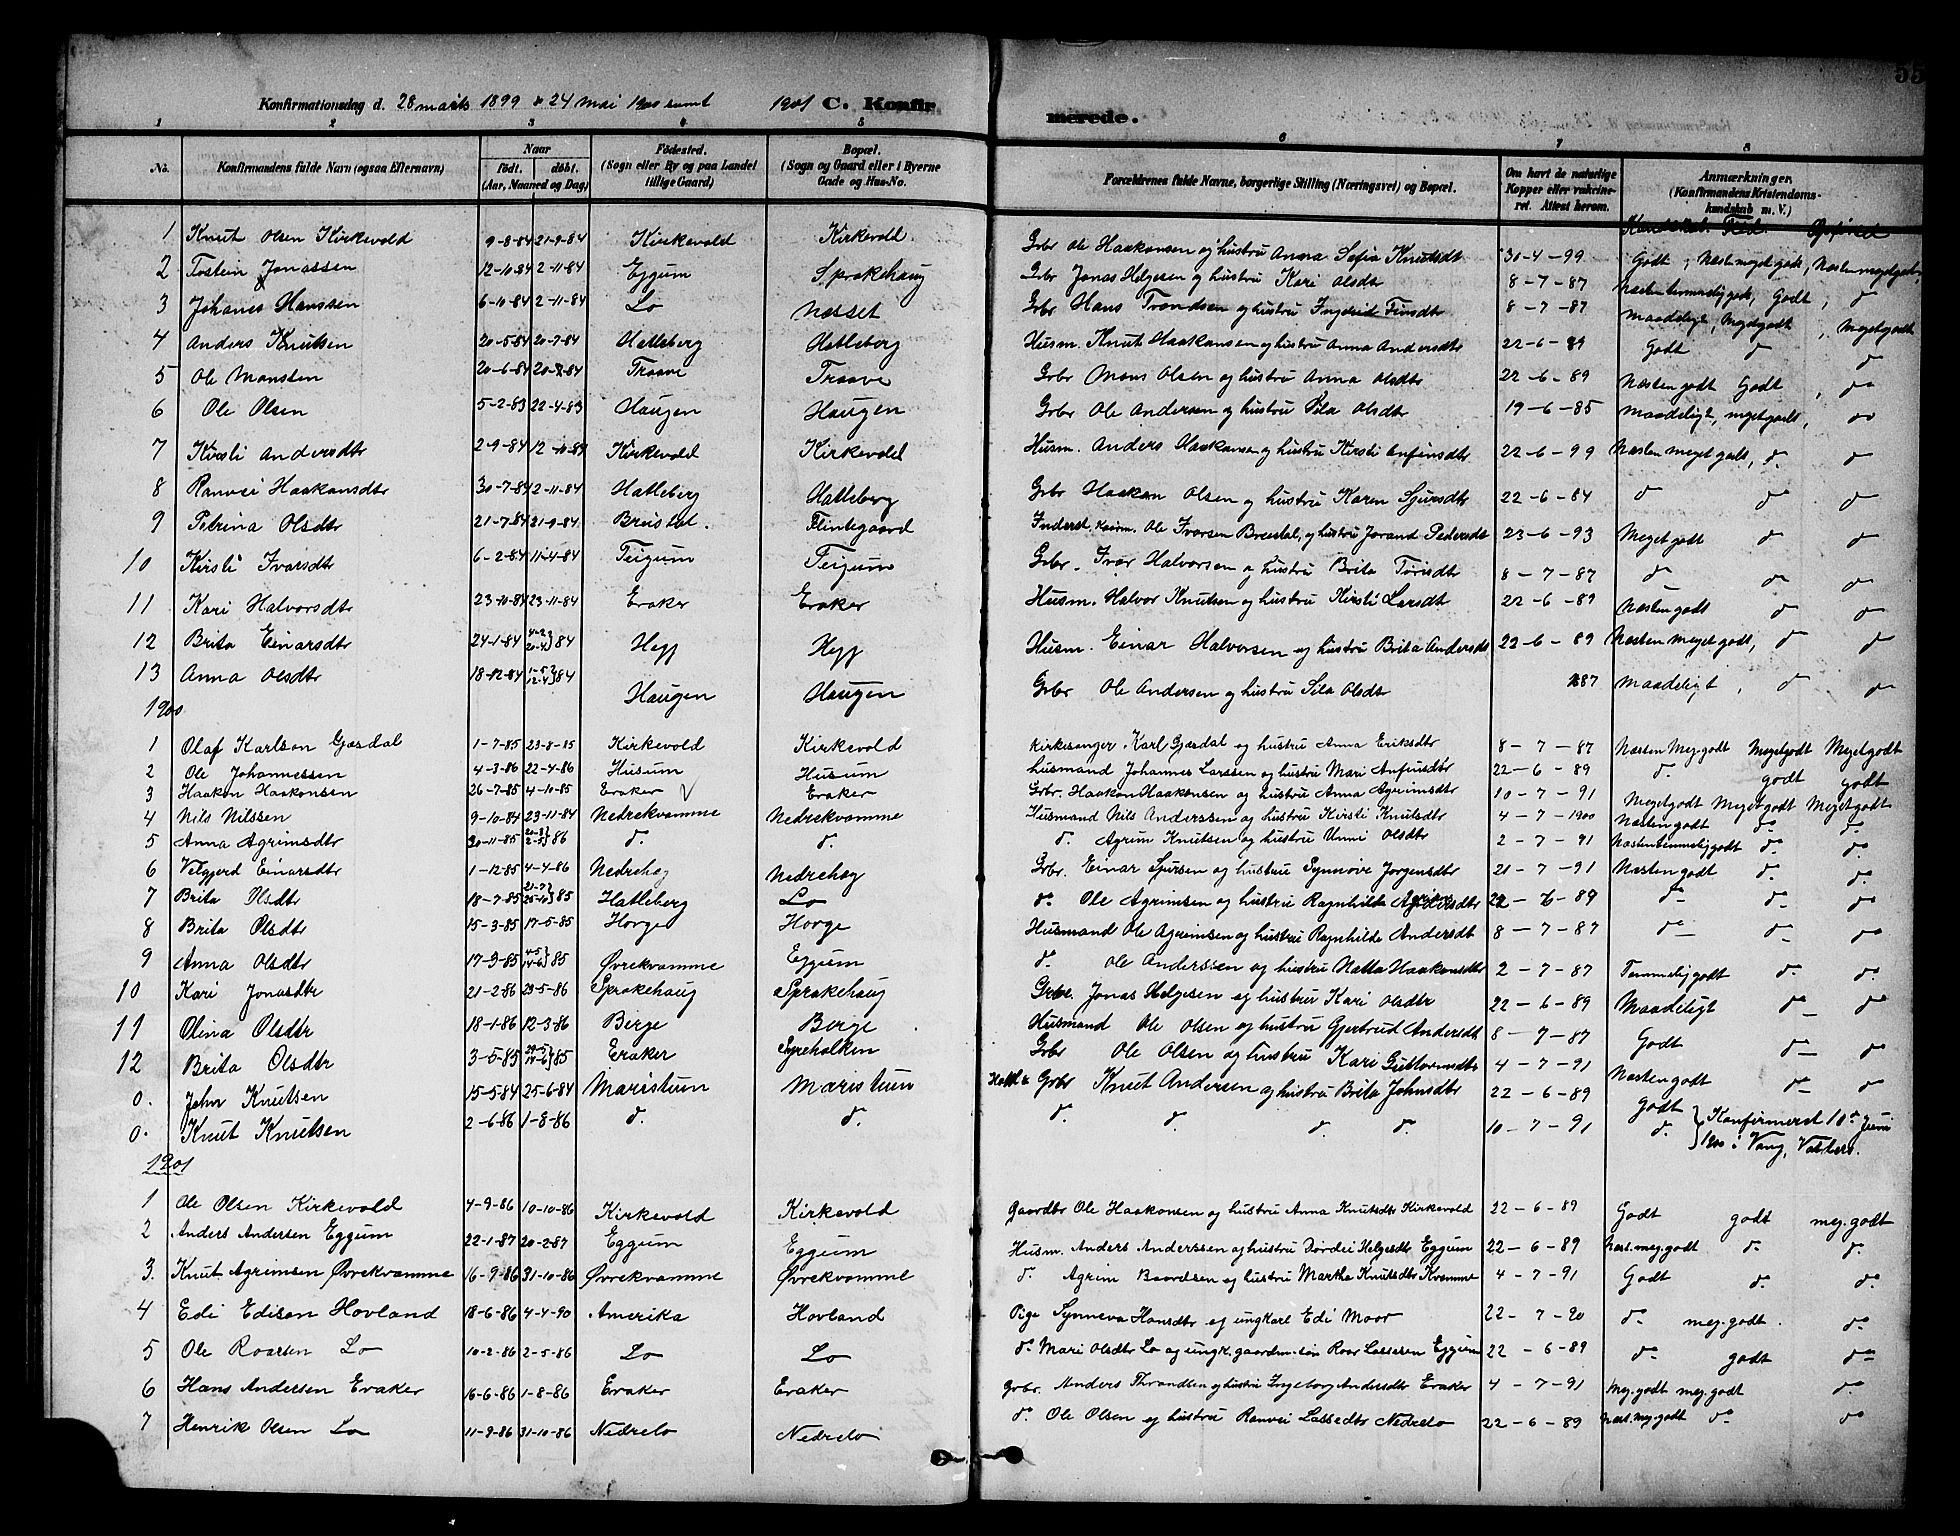 55
Konfirmationsdag d. 28 marts 1899 & 24 mai 1900 samt 1901 C. Konfirmerede.
1 2 3 4 5 6 7 8
No. Konfirmandens fulde Navn (ogsaa Efternavn) Naar født. døbt. (Aar, Maaned og Dag) Fødested. (Sogn eller By og paa Landet tillige Gaard) Bopæl. (Sogn og Gaard eller i Byerne Gade og Hus-No. Forældrenes fulde Navne, borgerlige Stilling (Næringsvei) og Bopæl. Om havt de naturlige Kopper eller vakcineret. Attest herom. Anmærkninger. (Konfirmandens Kristendomskundskab m. V.)
1 Knut Olsen Kirkevold 9-8-84 21-9-84 Kirkevold Kirkevold. Grbr Ole Haakonsen og hustru Anna Sofia Knutsdtr 30-4-99 Godt, Næsten meget godt, Næsten meget godt,
2 Tostein Jonassen 12-10-84 2-11-84 Eggum Sprakehaug Grbr Jonas Helgesen og hustru Kari Olsdtr 8-7-87 Næsten temmelig godt, Godt, do
3 Johanes Hanssen 6-10-84 2-11-84 Lo Næsset Grbr Hans Trondsen og hustru Ingrid Finsdtr 8-7-87 Maadeligt, Megetgodt, Megetgodt
4 Anders Knutsen 20-5-84 20-7-84 Hatleberg Hatleberg Husm. Knut Haakonsen og hustru Anna Andersdtr 22-6-89 Godt do do
5 Ole Monssen 20-6-84 20-7-84 Traave Traave Grbr Mons Olsen og hustru Anna Olsdtr 22-6-89 Næsten godt Godt, do
6 Ole Olsen 5-2-83 22-4-83 Haugen Haugen Grbr Ole Andersen og hustru Sila Olsdtr 19-6-85 Maadeligt, megetgodt, do
7 Kirsti Andersdtr 2-9-84 12-10-84 Kirkevold Kirkevold Husm. Anders Haakonsen og hustru Kirsti Anfinsdtr 22-6-99 Næsten meget godt, do do
8 Ranvei Haakonsdtr 30-7-84 2-11-84 Hatleberg Hatleberg Grbr Haakon Olsen og hustru Karen Sjursdtr 22-6-84 do do do
9 Petrina Olsdtr 21-7-84 21-9-84 Brustøl. Flintegaard Inderst, Ole Ivarsen og hustru Jorand Pedersdt 23-6-93 Meget godt do do
10 Kirsti Ivarsdtr 6-2-84 11-4-84 Teigum Teigum Grbr. Ivar Halvorsen og hustru Brita Torisdtr 8-7-87 do do do
11 Kari Halvorsdtr 23-10-84 23-11-84 Eraker Eraker Husm. Halvor Knutsen og hustru Kirsti Larsdt 22-6-89 Næsten godt do do
12 Brita Einarsdtr 24-1-84 4-2 20-4 } 84 Hegg Hegg Husm. Einar Halvorsen og hustru Brita Andersdt 22-6-89 Næsten Meget godt, do do
13 Anna Olsdtr 18-12-84 1-5 12-4 } 84 Haugen Haugen Grbr Ole Andersen og hustru Sila Olsdt 87 Maadeligt, do do
1900
1 Olaf Karlson Gjesdal 1-7-85 23-8-85 Kirkevold Kirkevold Kirkesanger Karl Gjesdal og hustru Anna Eriksdtr 8-7-87 Næsten Meg. godt Megetgodt Megetgodt
2 Ole Johannessen 4-3-86 22-4-86 Husum Husum husmand Johannes Larssen og hustru Mari Anfinsdtr 22-6-89 do. godt godt
3 Haakon Haakonsen 26-7-85 4-10-85 Eraker Eraker Grbr. Haakon Haakonsen og hustru Anna Agrimsdtr 10-7-91 Megetgodt Megetgodt Megetgodt
4 Nils Nilssen 9-10-84 23-11-84 Nedrekvamme Nedrekvamme Husmand Nils Anderssen og hustru Kirsti Knutsdtr 4-7-1900 Næstengodt do. do.
5 Anna Agrimsdtr 30-11-85 } 86 do. do. do. Agrim Knutsen og hustru Unni Olsdtr 2-7-91 Næstentemmeliggodt do. do.
6 Velgjerd Einarsdtr 1-12-85 4-4-86 Nedreheg Nedrehæg Grbr. Einar Sjursen og hustru Synnøve Jørgensdtr 21-7-91 Næsten godt do. do.
7 Brita Olsdtr 18-7-85 21-7 25-10 } 85 Hatleberg Lo do. Ole Agrimsen og hustru Ragnhilde 22-6-89 do do. do
8 Brita Olsdtr 15-3-85 17-5-85 Horge Horge Husmand Ole Agrimsen og hustru Ragnhilde Andersdt 8-7-87 do do do
9 Anna Olsdtr 17-3-85 4-5 14-6 } 85 Øvrekvamme Eggum do. Ole Anderssen og hustru Natta Haakonsdtr 2-7-87 Temmeliggodt do. do
10 Kari Jonasdtr 21-2-86 23-5-86 Sprakehaug Sprakehaug Grbr. Jonas Helgesen og hustru Kari Olsdtr 22-6-89 Maadeligt do do
11 Olina Olsdtr 18-1-86 12-3-86 Berge Berge Husmand Ole Olsen og hustru Gjertrud Andersdt 8-7-87 Godt do do
12 Brita Olsdtr 3-5-85 } 85 Eraker Syrehalken Grbr Ole Olsen og hustru Kari Guttormsdtr 4-7-91 Næsten godt do do
0. John Knutsen 15-5-84 25-6-84 Maristuen Maristuen Grbr Knut Andersen og hustru Brita Johnsdtr 22-6-89 godt } Konfirmeret 10de Juni
0. Knut Knutsen 2-6-86 1-8-86 do. do. do. do. do. do. 10-7-91 do. 1900 i Vang, Valders.
1901
1 Ole Olsen Kirkevold 4-9-86 10-10-86 Kirkevold Kirkevold Gaardbr Ole Haakonsen og hustru Anna Knutsdtr Kirkevold 22-6-89 Godt godt meg. godt
2 Anders Andersen Eggum 22-1-87 20-2-87 Eggum Eggum Husm. Anders Anderssen og hustru Dordei Helgesdtr Eggum 22-6-89 Næst. meg. godt do. do.
3. Knut Agrimsen Øvrekvamme 16-9-86 31-10-86 Øvrekvamme Øvrekvamme do. Agrim Baardsen og hustru Martha Knutsdtr Kvamme 4-7-91 Godt do. do.
4 Edi Edison Hovland 18-6-86 4-4-90 Amerika Hovland Pige Synneva Hansdtr og ungkarl Edi Moor 22-7-90 do. meg. godt. do.
5 Ole Roarsen Lo 10-2-86 2-5-86 Lo Lo do Mari Olsdtr Lo og ungk. gaardm. søn Roar Lassesen Eggum 22-6-89 do. godt do
6 Hans Andersen Eraker 16-6-86 1-8-86 Eraker Eraker Grbr. Anders Thrandsen og hustru Ingeborg Andersdtr Eraker 4-7-91 Meg. godt meg. godt do.
7 Henrik Olsen Lo 11-9-86 31-10-86 Nedrelo Nedrelo do. Ole Olsen og hustru Ranvei Lassedtr Nedrelo 22-6-89 Næst. meg. godt do do